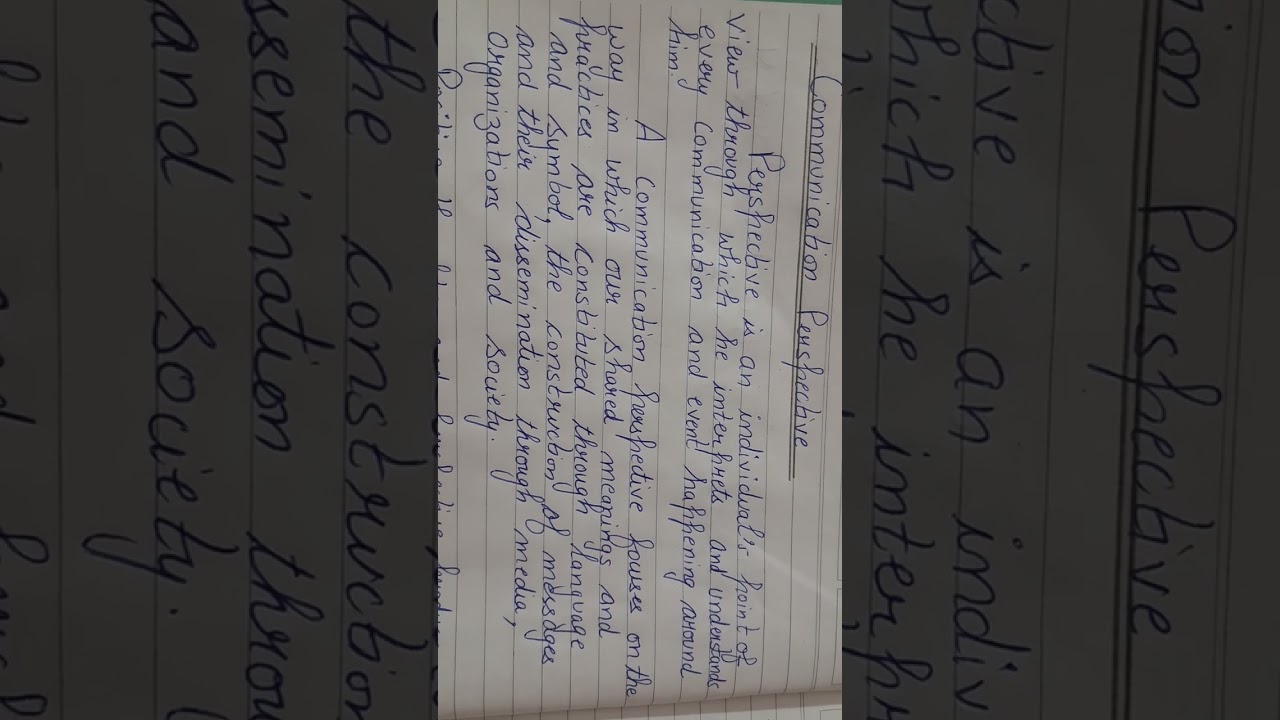 Communication Perspective
Perspective is an individual's point of
view through which he interprets and understands
every communication and event happening around
him.
A communication perspective focuses on the
way in which our shared meanings and
practices are constituted through language
and symbol, the construction of messages
and their dissemination through media,
organizations and society.